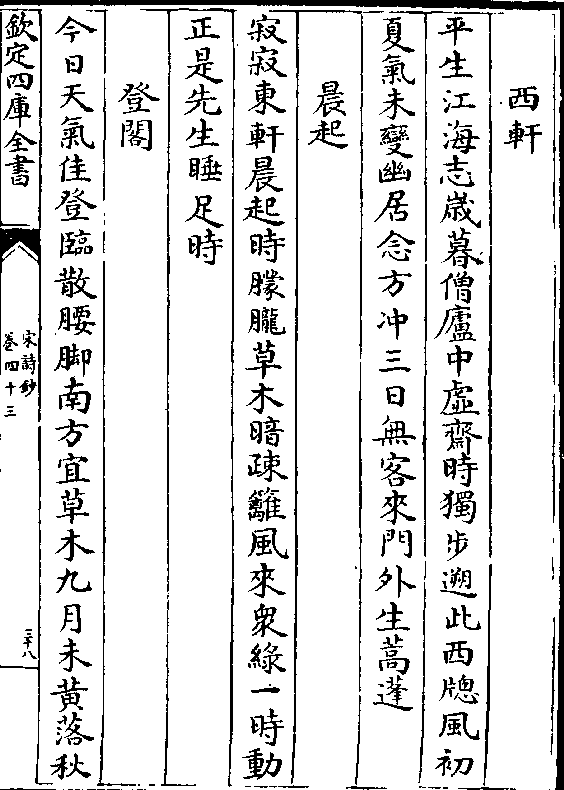 西軒
平生江海志歲暮僧廬中虛齋時獨步遡此西牎風初
夏氣未變幽居念方冲三日無客來門外生蒿蓬
晨起
寂寂東軒晨起時朦朧草木暗疎籬風來衆綠一時動
正是先生睡足時
登閣
今日天氣佳登臨散腰脚南方宜草木九月未黃落秋
欽定四庫全書
宋詩鈔
卷四十三
三十八